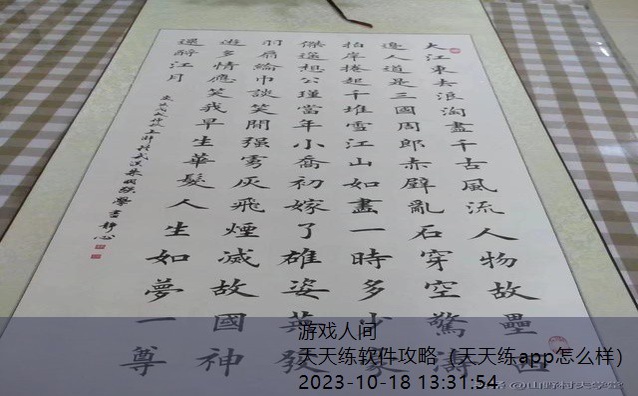 大江東去浪淘盡千古風流人物故壘西
邊人道是三國周郎赤壁亂石穿空驚濤
拍岸捲起千堆雪江山如畫一時多少豪
傑遙想公瑾當年小喬初嫁了雄姿英發
羽扇綸巾談笑間强虜灰飛煙滅故國神
遊多情應笑我早生華髮人生如夢一尊
還酹江月
游戏人间
天天练软件攻略（天天练app怎么样）
2023-10-18 13:31:54